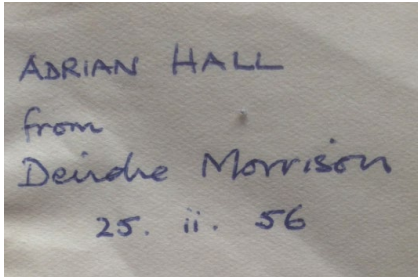 ADRIAN HALL
from
Deirdre Morrison
25. ii. 56